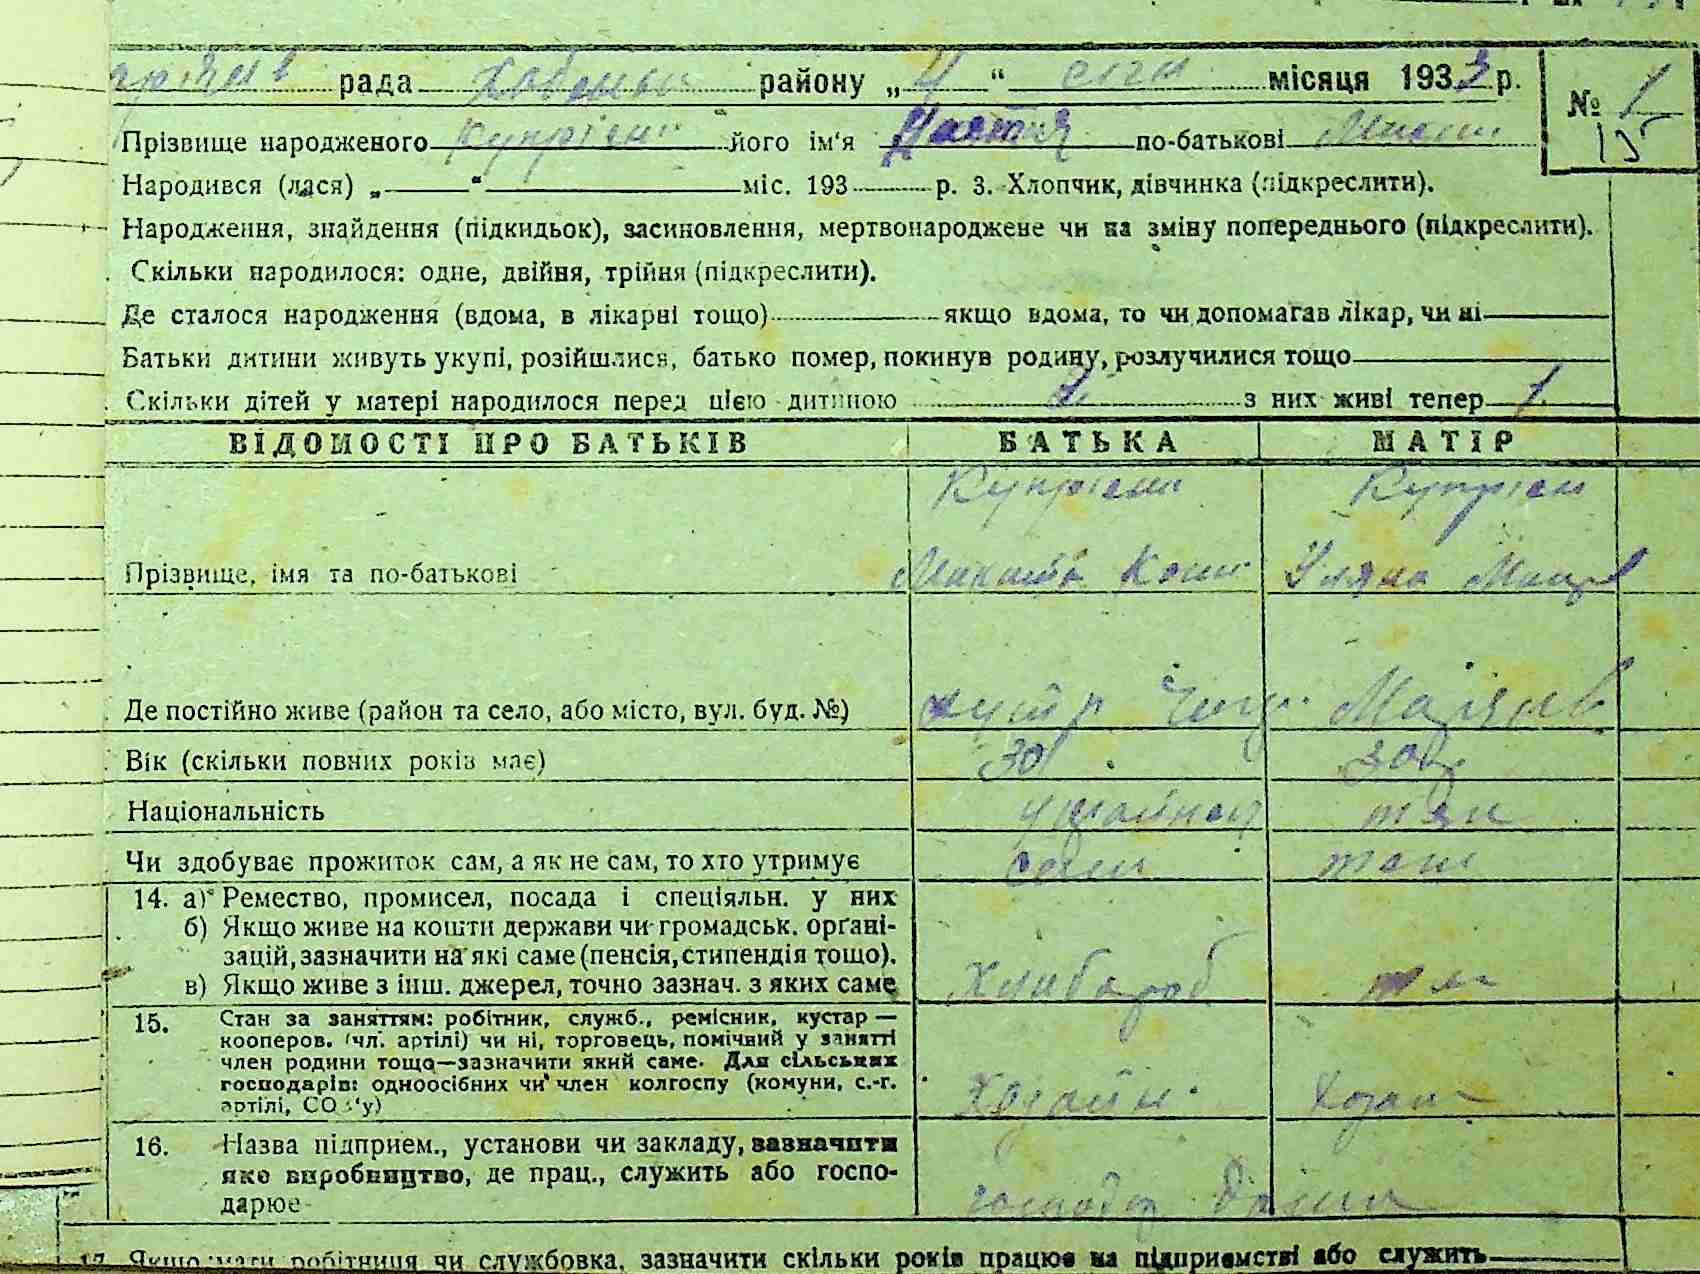 рада район у „4“ січн місяця 1933 р.
№ 1
15
Прізвище народженого Купрієн його ім‘я Настя по-батькові Микит
Народився (лася) „ “ міс. 193 р. 3. Хлопчик, дівчинка (підкреслити).
Народження, знайдення (підкидьок), засиновлення, мертвонароджене чи на зміну попереднього (підкреслити).
Скільки народилося: одне, двійня, трійня (підкреслити).
Де сталося народження (вдома, в лікарні тощо) якщо вдома, то чи допомагав лікар, чи ні
Батьки дитини живуть укупі, розійшлися, батько помер, покинув родину, розлучилися тощо
Скільки дітей у матері народилося перед цією дитиною 2 з них живі тепер 1
ВІДОМОСТІ ПРО БАТЬКІВ БАТЬКА МАТІР
Купрієн Купрієн
Прізвище, імя та по-батькові Микита Уляна
Де постійно живе (район та село, або місто, вул. буд. №) хутір
Вік (скільки повних років має) 30 30
Національність україн тж
Чи здобуває прожиток сам, а як не сам, то хто утримує сам
14. а) Ремество, промисел, посада і спеціяльн. у них
б) Якщо живе на кошти держави чи громадськ. орґані-
зацій, зазначити на які саме (пенсія, стипендія тощо).
в) Якщо живе з інш. джерел, точно зазнач. з яких саме Хлибороб
15. Стан за заняттям: робітник, служб., ремісник, кустар —
кооперов. (чл. артілі) чи ні, торговець, помічний у занятті
член родини тощо—зазначити який саме. Для сільських
господарів: одноосібних чи член колгоспу (комуни, с.-г.
артілі, СОЗ‘у) Хозаїн
16. Назва підприєм., установи чи закладу, зазначити
яке виробництво, де прац., служить або госпо-
дарює
17. Якщо мати робітниця чи службовка, зазначити скільки років працює на підприємстві або служить